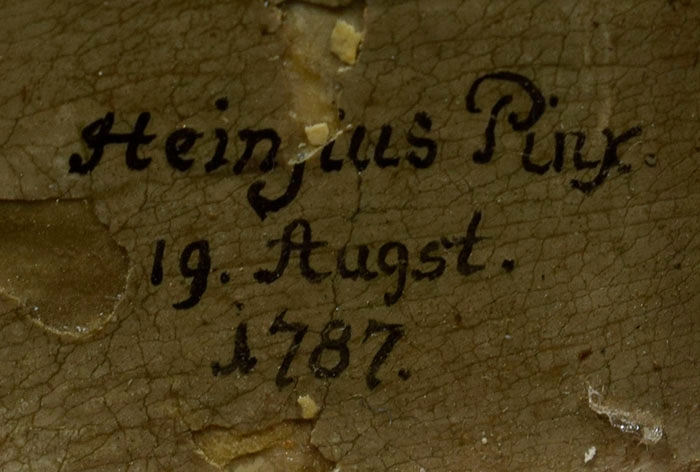 Heinsius Pinx.
19. Augst.
i 787.